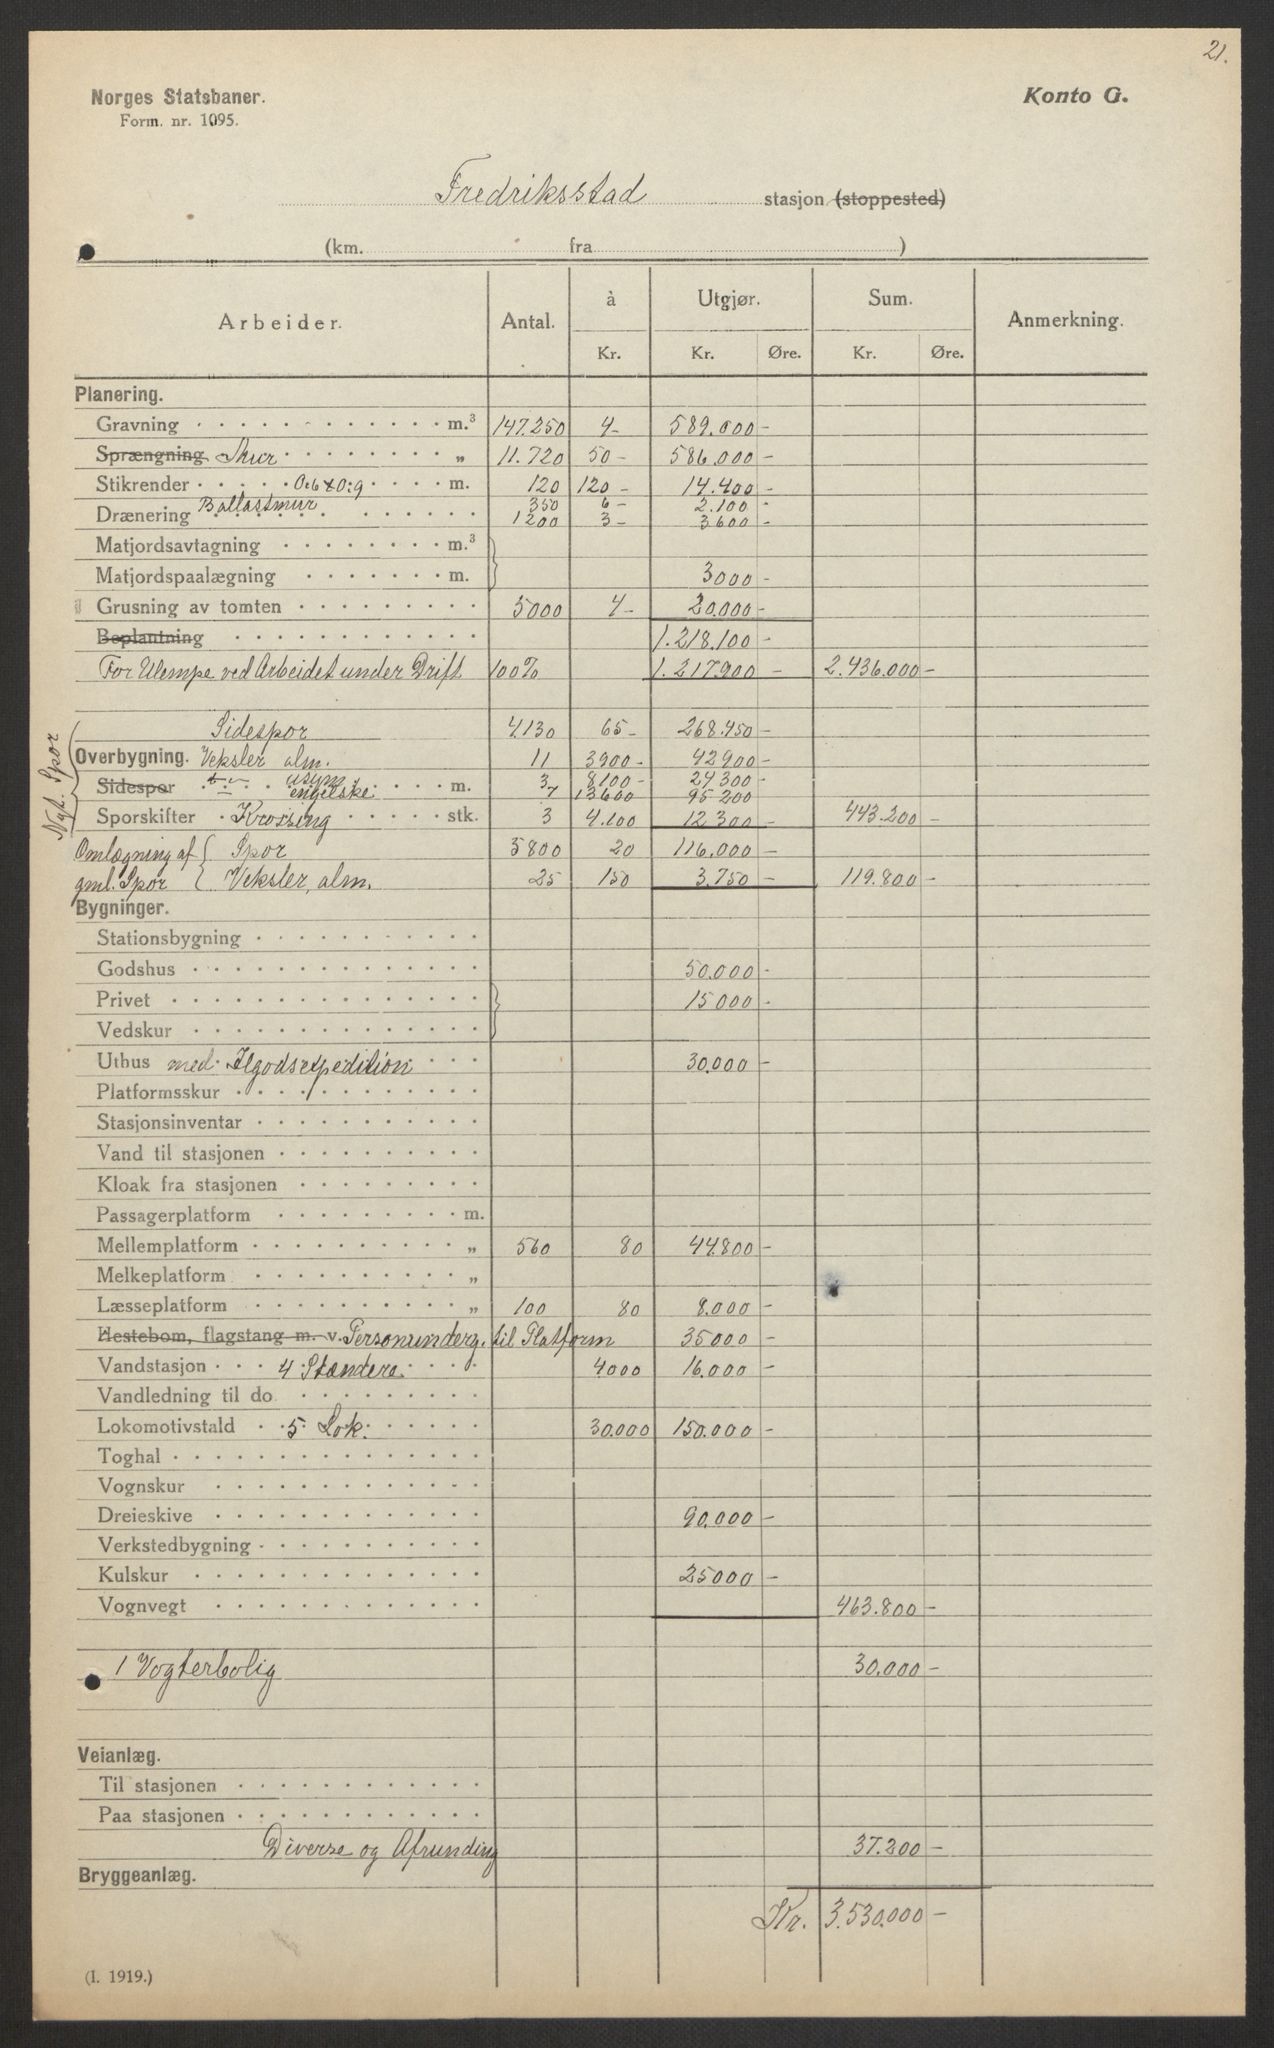 21.
Norges Statsbaner.
Konto G.
Form. nr. 1095.
Fredriksstad stasjon (stoppested)
(km. fra )
Arbeider. Antal. à Utgjør. Sum. Anmerkning.
Kr. Kr. Øre. Kr. Øre.
Planering.
Gravning m.³ 147.250 4- 589.000 -
Sprængning Mur „ 11.720 50- 586.000 -
Stikrender 0:6 x 0:9 m. 120 120 - 14.400 -
Ballastmur 350 6- 2.100 -
Drænering 1200 3- 3600 -
Matjordsavtagning m.³
Matjordspaalægning m. 3000 -
Grusning av tomten 5000 4- 20.000 -
Beplantning 1.218.100 -
For Ulempe ved Arbeidet under Drift 100% 1.217.900 - 2.436.000 -
Nyt. Spor
Sidespor 4.130 65- 268.450 -
Overbygning. Veksler alm. 11 3900 - 42900 -
Sidespor usym m. 3 8100 - 24300 -
engelske 7 13600 95200
Sporskifter Krossing stk. 3 4.100 12300 - 443.200 -
Omlægning af { Spor 5800 20 116.000 -
gml. Spor { Veksler, alm. 25 150 3.750 - 119.800 -
Bygninger.
Stationsbygning
Godshus 50.000 -
Privet 15000 -
Vedskur
Uthus med Ilgodsexpedition 30.000 -
Platformsskur
Stasjonsinventar
Vand til stasjonen
Kloak fra stasjonen
Passagerplatform m.
Mellemplatform „ 560 80 44.800 -
Melkeplatform „
Læsseplatform „ 100 80 8.000 -
Hestebom, flagstang m. v. Personunderg. til Platform 35000 -
Vandstasjon 4 Stændere 4000 16.000 -
Vandledning til do
Lokomotivstald 5 Lok. 30.000 150.000 -
Toghal
Vognskur
Dreieskive 90.000 -
Verkstedbygning
Kulskur 25000 -
Vognvegt 463.800 -
1 Vogterbolig 30.000 -
Veianlæg.
Til stasjonen
Paa stasjonen
Diverse og Afrunding 37.200 -
Bryggeanlæg.
Kr. 3.530.000 -
(I. 1919.)